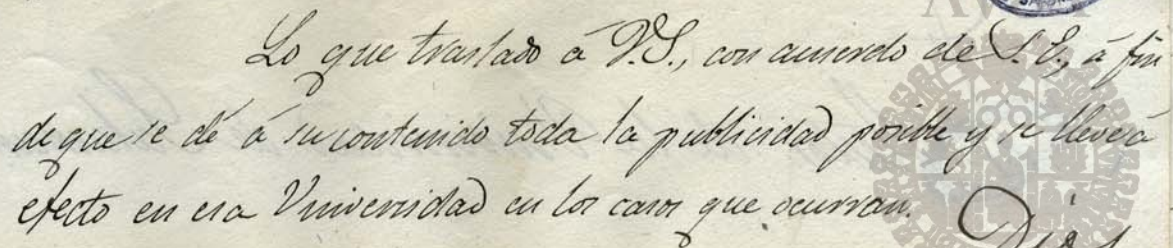 Lo que traslado á V.S., con acuerdo de S.E., á fin
de que se dé á su contenido toda la publicidad posible y se lleve á
efecto en esa Universidad en los casos que ocurran.
Dios